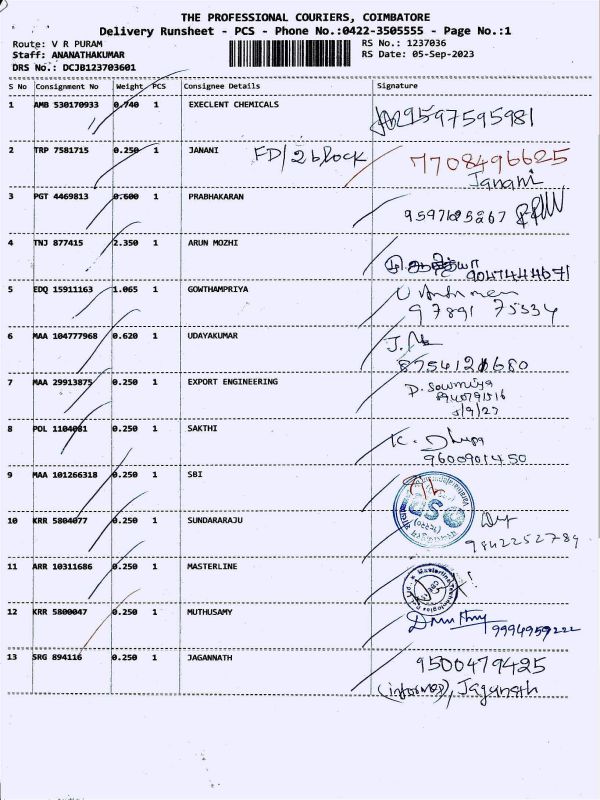 THE PROFESSIONAL COURIERS, COIMBATORE
Delivery Runsheet - PCS - Phone No.:0422-3505555 - Page No.:1
Route: V R PURAM
RS No.: 1237036
Staff: ANANATHAKUMAR
RS Date: 05-Sep-2023
DRS No.: DCJB123703601
S No Consignment No Weight PCS Consignee Details Signature
1 AMB 530170933 0.740 1 EXECLENT CHEMICALS 9597595981
2 TRP 7581715 0.250 1 JANANI FD/2 block 7708496625
Janani
3 PGT 4469813 0.600 1 PRABHAKARAN
4 TNJ 877415 2.350 1 ARUN MOZHI
9047444671
5 EDQ 15911163 1.065 1 GOWTHAMPRIYA
97891 75334
6 MAA 104777968 0.620 1 UDAYAKUMAR
7 MAA 29913875 0.250 1 EXPORT ENGINEERING D. Sowmiya
8940791516
8 POL 1104081 0.250 1 SAKTHI K. Dhivya
9600901450
9 MAA 101266318 0.250 1 SBI
10 KRR 5804077 0.250 1 SUNDARARAJU
9842252789
11 ARR 10311686 0.250 1 MASTERLINE
12 KRR 5800047 0.250 1 MUTHUSAMY
9994959222
13 SRG 894116 0.250 1 JAGANNATH 9500479425
(informed), Jaganath